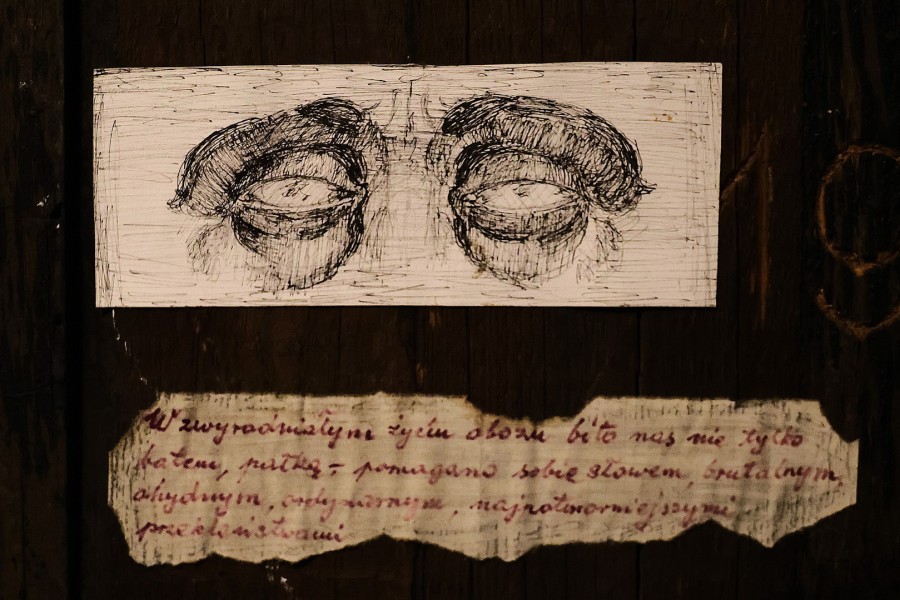 W zwyrodniałym życiu obozu bito nas nie tylko
batem, pałką - pomagano sobie słowem, brutalnym,
ohydnym, ordynarnym, najpotworniejszymi
przekleństwami